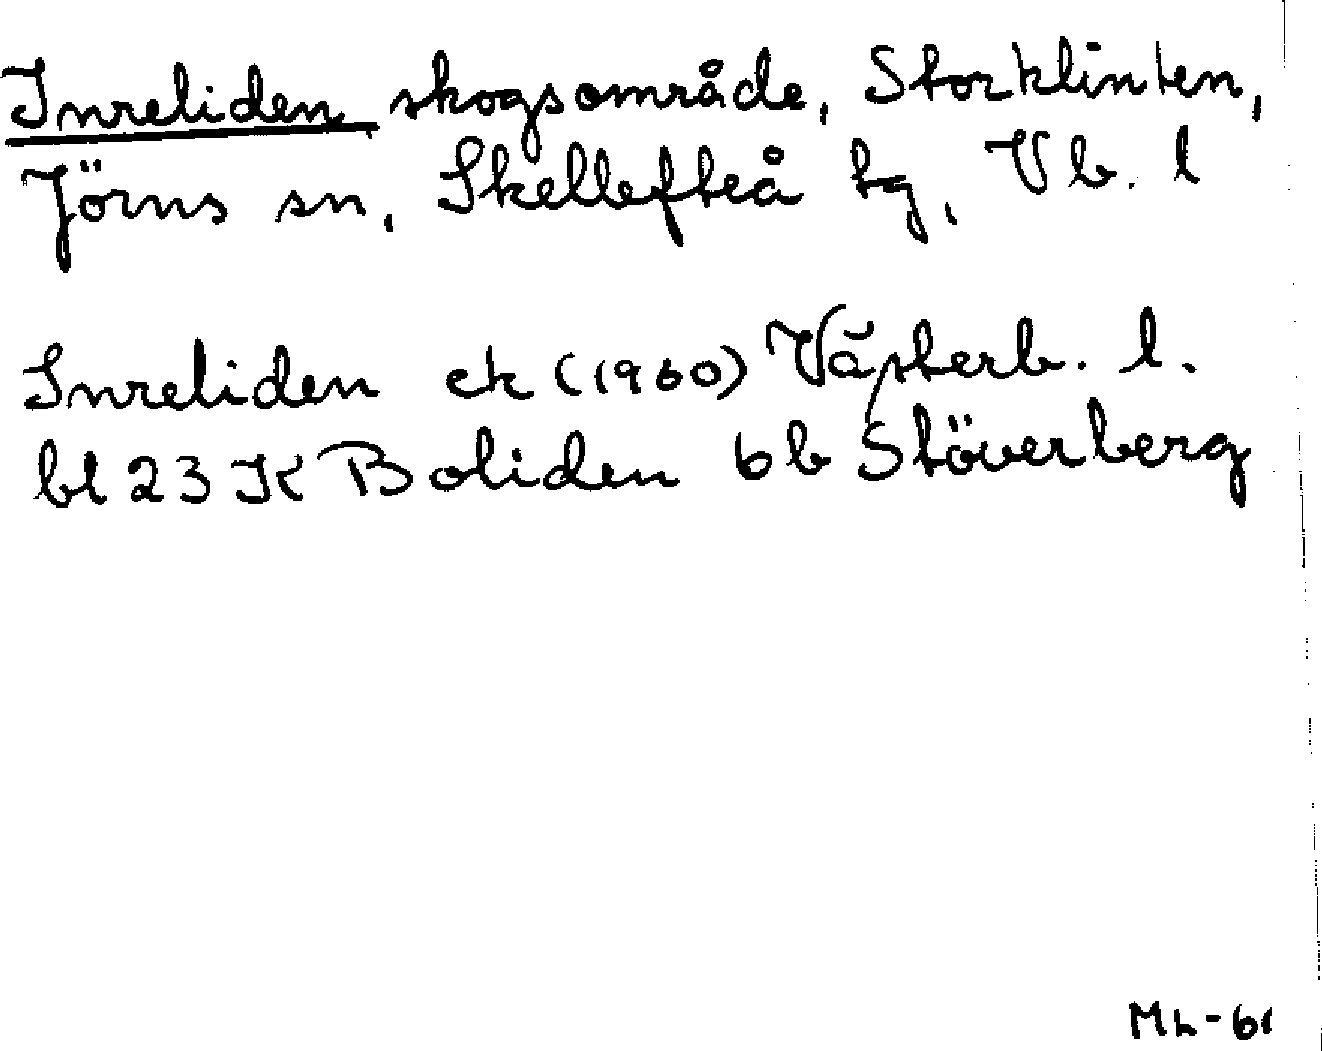 Inreliden skogsområde, Storklinten,
Jörns sn, Skellefteå tg, Vb. l
Inreliden ek (1960) Västerb. l.
bl 23 K Boliden 6 b Stöverberg
ML-61